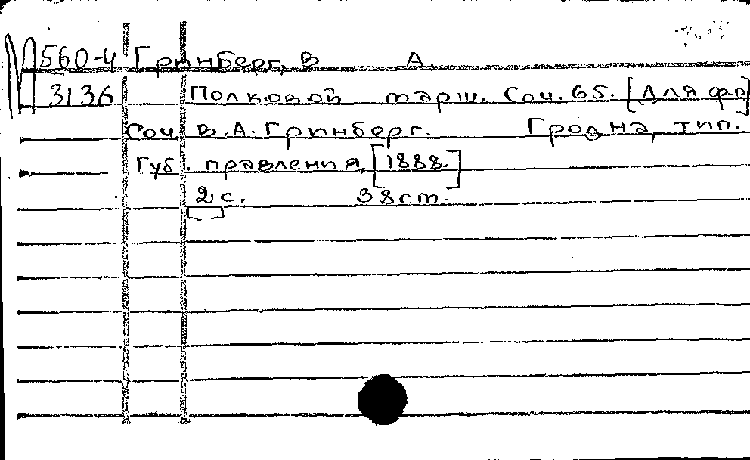 560-4 Гринберг, В А.
3136 Полковой марш. Соч. 65. [Для фп]
Соч. В.А. Гринберг. Гродна, тип.
Губ. правления, [1888.]
2 с. 38 cm.